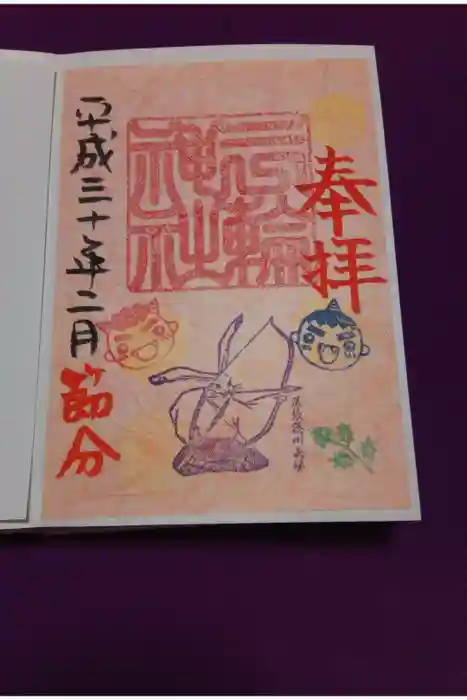 奉拝
三輪
神社
平成三十年二月
節分